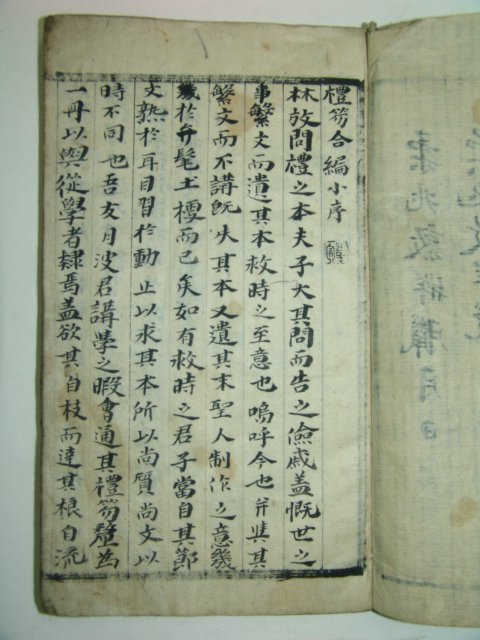 禮笏合編小序
林放問禮之本夫子大其問而告之儉戚盖慨世之
事繁文而遺其本救時之至意也嗚呼今也幷與其
繁文而不講旣失其本又遺其末聖人制作之意幾
幾於弁髦土梗而已矣如有救時之君子當自其節
文熟於耳目習於動止以求其本所以尚質尚文以
時不同也吾友月波君講學之暇會通其禮笏釐爲
一冊以與從學者隸焉盖欲其自枝而達其根自流